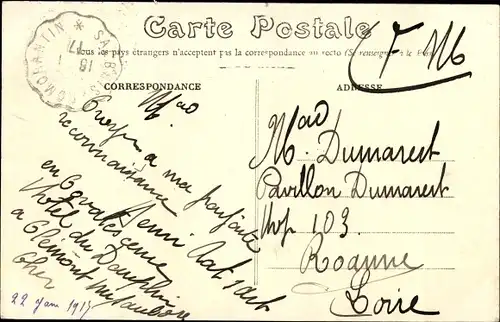 Carte Postale
Tous les pays étrangers n'acceptent pas la correspondance au recto (Se renseigner à la Poste
F. M
CORRESPONDANCE
ADRESSE
Mad
Croyez a ma parfaite
reconnaissance
Henri
en Convalescence
hotel du Dauphin
a
Cher
22 Jan 1917
Mad
M. Dumarest
Pavillon Dumarest
Hop 103
Roanne
Loire
ROMORANTIN
18 1
17